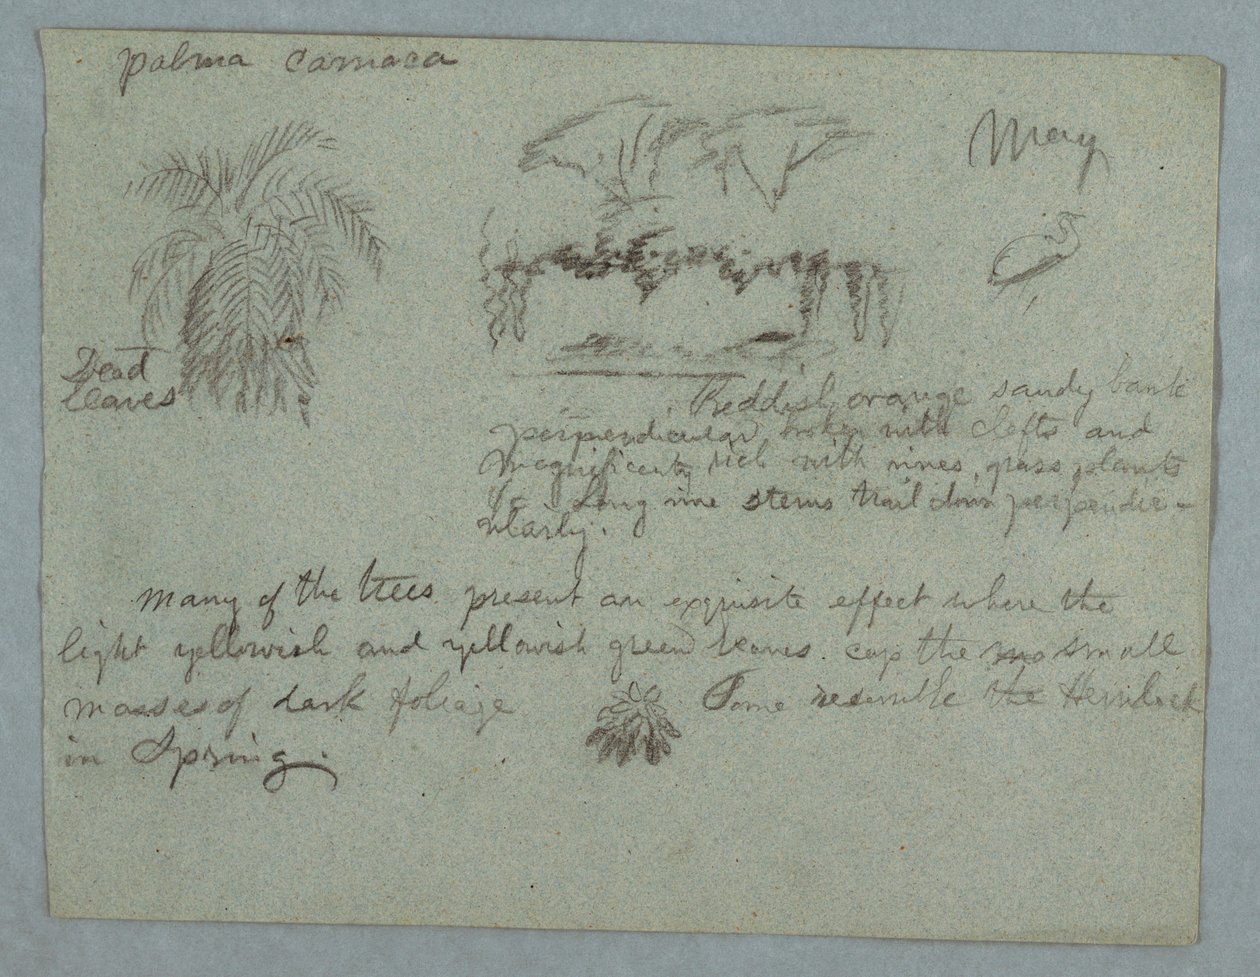 palma camaca
May
Dead
leaves
Reddish orange sandy bank
perpendicular broken with clefts and
magnificently rich with vines, grass, plants
&c Long vine stems trail down perpendic-
ularly.
many of the trees present an exquisite effect where the
light yellowish and yellowish green leaves cap the small
masses of dark foliage Some resemble the Hemlock
in Spring.